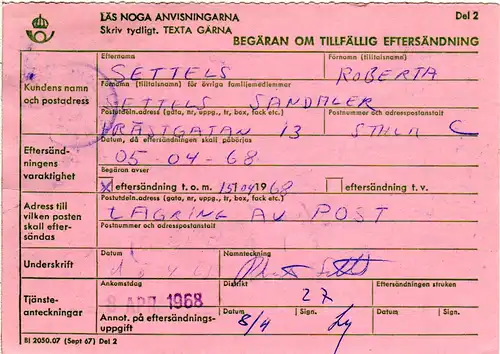 LÄS NOGA ANVISNINGARNA
Del 2
Skriv tydligt. TEXTA GÄRNA
BEGÄRAN OM TILLFÄLLIG EFTERSÄNDNING
Kundens namn och postadress
Efternamn
Förnamn (tilltalsnamn)
SETTELS
ROBERTA
Förnamn (tilltalsnamn) för övriga familjemedlemmar
SETTELS SANDALER
Postutdeln.adress (gata, nr, uppg., tr, box, fack etc.)
Postnummer och adresspostanstalt
PRÄSTGATAN 13
STHLM C
Eftersändningens varaktighet
Datum, då eftersändningen skall påbörjas
05-04-68
Begäran avser
x eftersändning t. o. m. 15/04 1968
eftersändning t. v.
Adress till vilken posten skall eftersändas
Postutdeln.adress (gata, nr, uppg., tr, box, fack etc.)
LAGRING AV POST
Postnummer och adresspostanstalt
Underskrift
Datum
Namnteckning
Tjänsteanteckningar
Ankomstdag
Distrikt
Eftersändningen struken
8 APR 1968
27
Annot. på eftersändningsuppgift
Datum
Sign.
Datum
Sign.
8/4
BI 2050.07 (Sept 67) Del 2